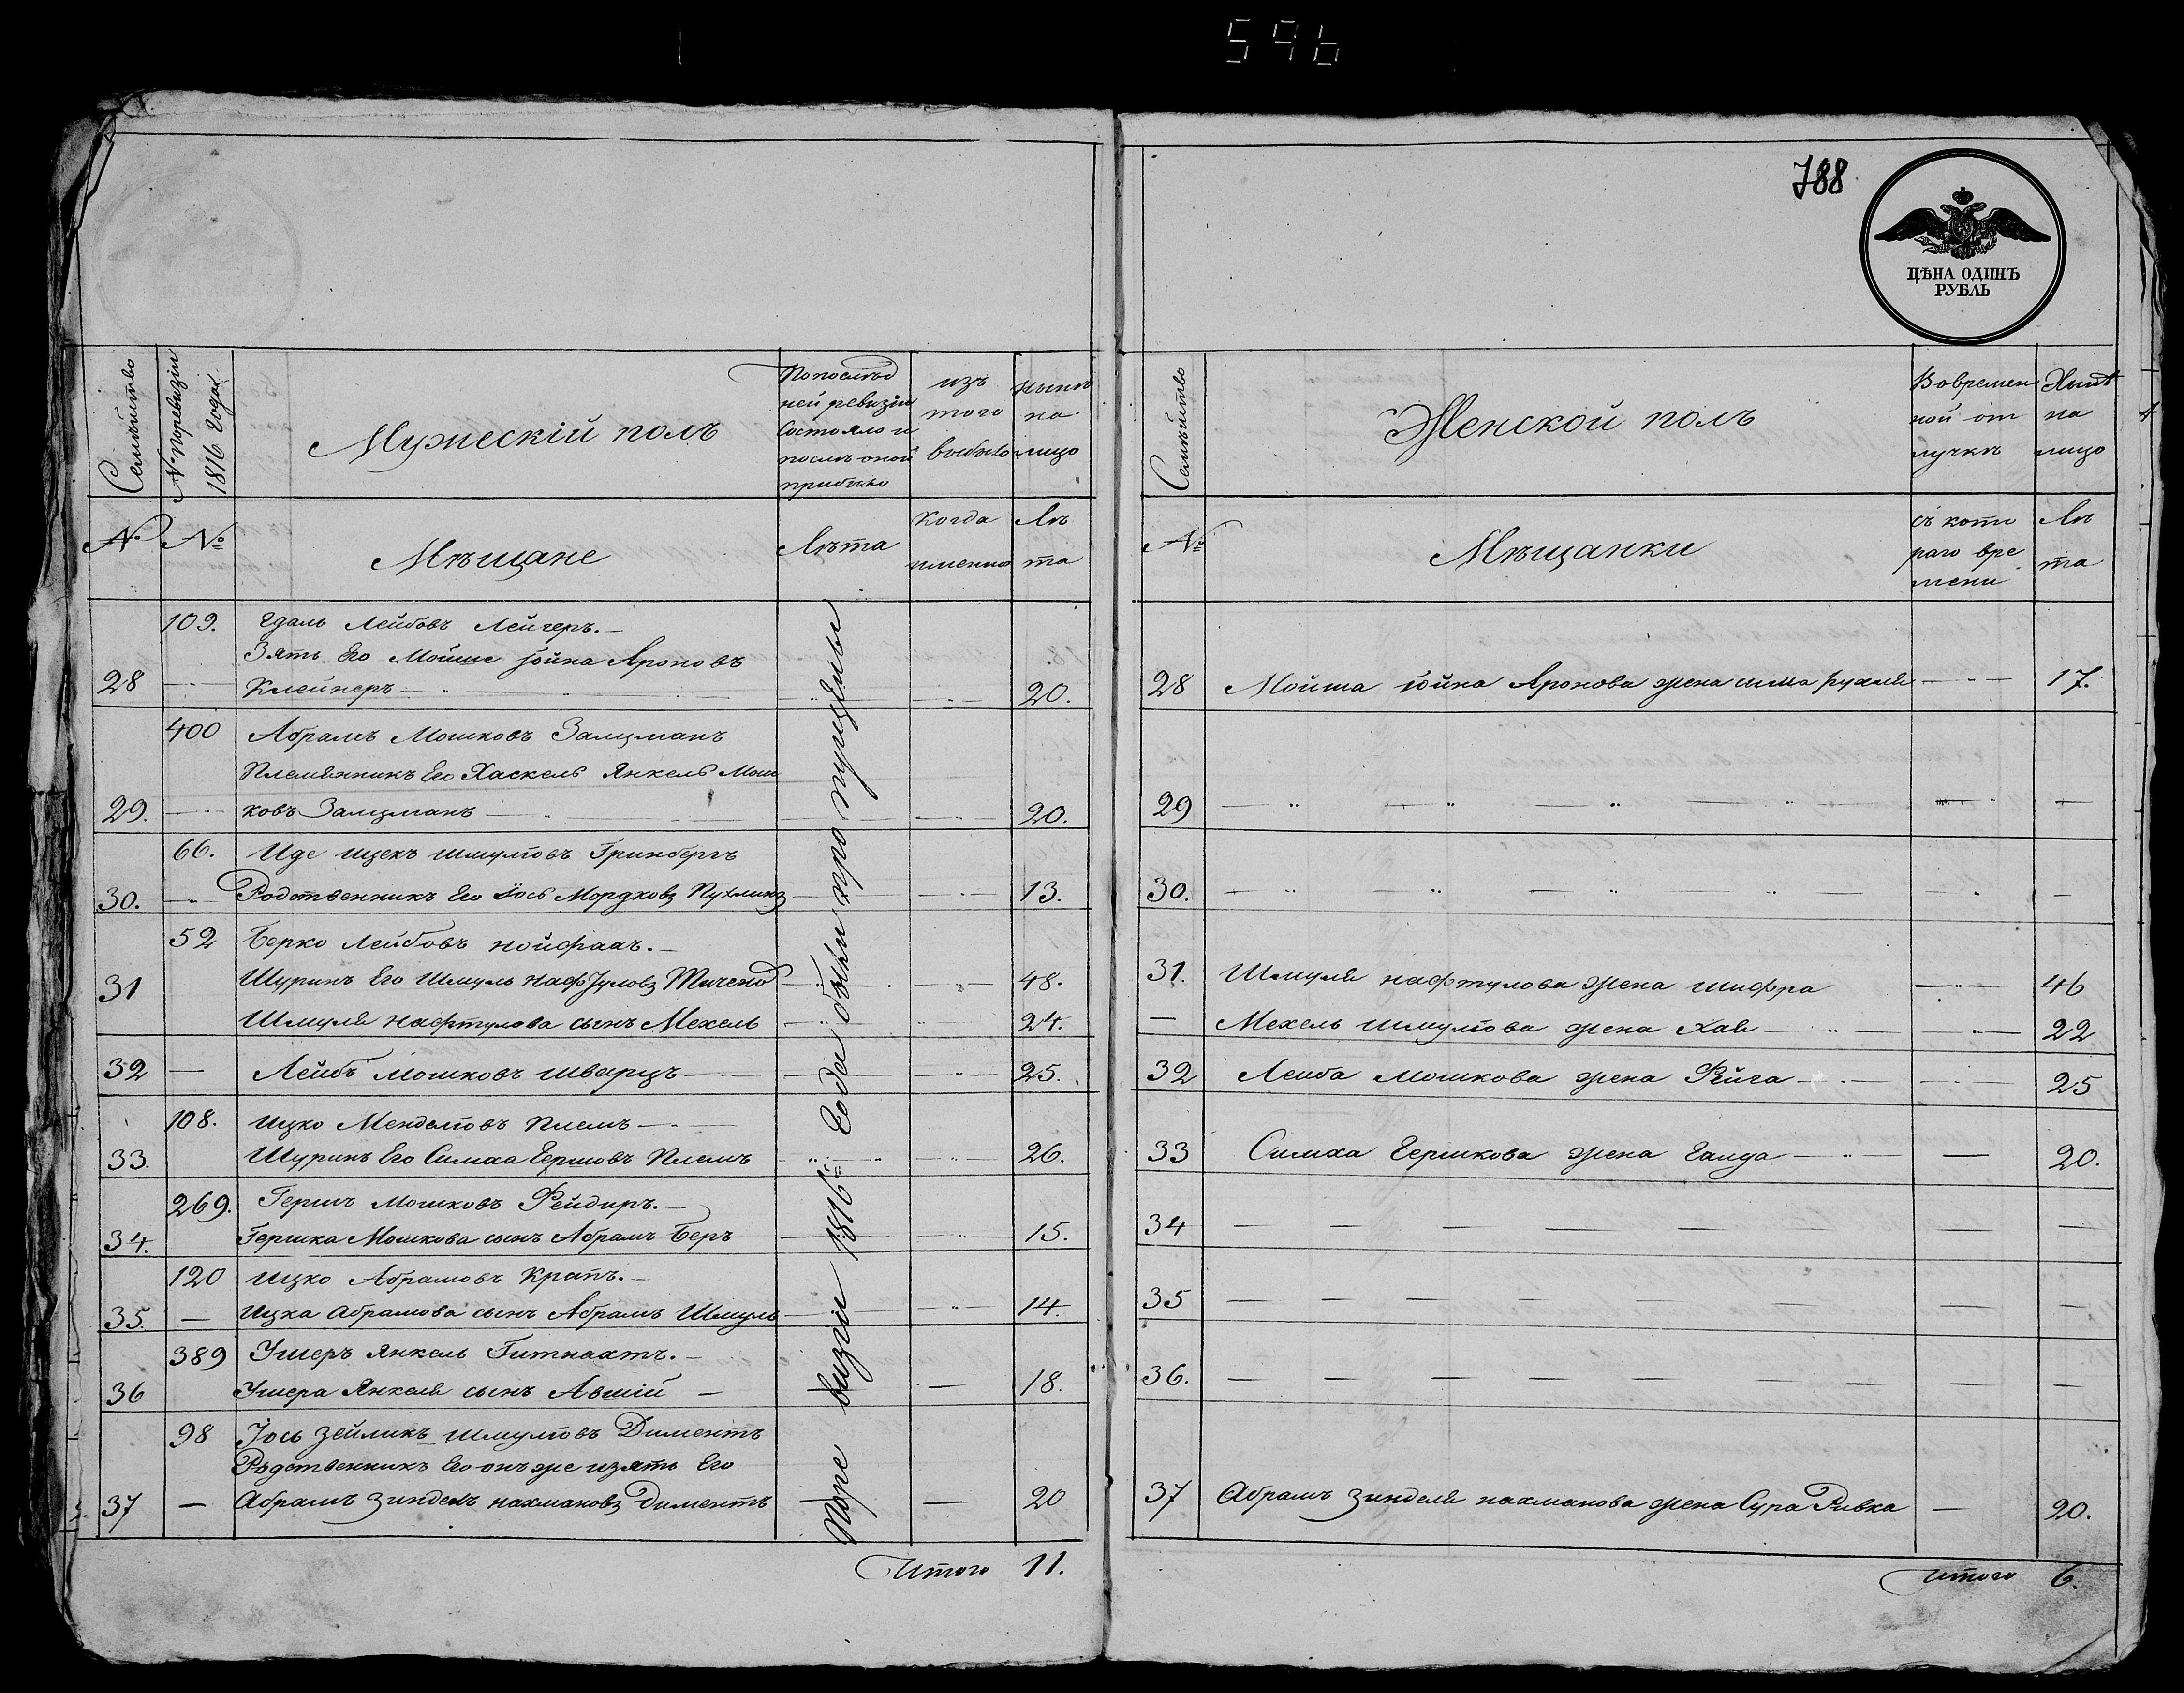 596
788
ЦѢНА ОДИНЪ
РУБЛЬ
Семѣйство
№ поревизіи
1816 года
Мужескій полъ
Попослѣд
ней ревизіи
состояло и
послѣ оной
прибыло
изъ
того
выбыло
нынѣ
на
лицо
№
№
Мѣщане
Лѣта
когда
именно
Лѣ
та
Поре визіи 1816 года были пропущены
109. Гдаль Лейбовъ Лейчеръ.
Зять Его Мойше Іойна Ароновъ
28 Клейнеръ 20.
400 Абрамъ Мошковъ Залцманъ
Племянникъ Его Хаскель Янкель Мош
29. ковъ Залцманъ 20.
66. Иде ицекъ шмулiовъ Гринбергъ
30. Родственникъ Его Іось Мордковъ 13.
52 Берко Лейбовъ нойфаах.
31 Шуринъ Его Шмуль нафтуловъ 48.
Шмуля нафтулова сынъ Мехель 24.
32 Лейбъ Мошковъ шварцъ 25.
108. ицко Менделiовъ Племъ
33. Шуринъ Его Симха Гершовъ Племъ 26.
269. Гершъ Мошковъ Фейдиръ.
34. Гершка Мошкова сынъ Абрамъ Беръ 15.
120 ицко Абрамовъ Крапъ.
35. Ицка абрамова сынъ Абрамъ Шмуль 14.
389 Ушеръ Янкель Гитнахтъ.
36 Ушера Янкеля сынъ Авшій 18.
98 Іось Зейликъ шмулiовъ Диментъ
Родственникъ Его онъ же изять Его
37 Абрамъ Зиндель нахмановъ Диментъ 20
Итого 11.
Семѣйство
Женской полъ
Вовремен
ной от
лучкѣ
Нынѣ
на
лицо
№
Мѣщанки
съ кото
раго вре
мени
Лѣ
та
28 Мойша Іойна Аронова жена сима рухля 17.
29
30.
31. Шмуля нафтулова жена шифра 46
Мехель шмулiова жена Хая 22
32 Лейба мошкова жена Рейза 25
33 Симха Гершкова жена Галда 20.
34
35
36.
37 Абрамъ Зинделя нахманова жена Сура Ривка 20.
итого 6.